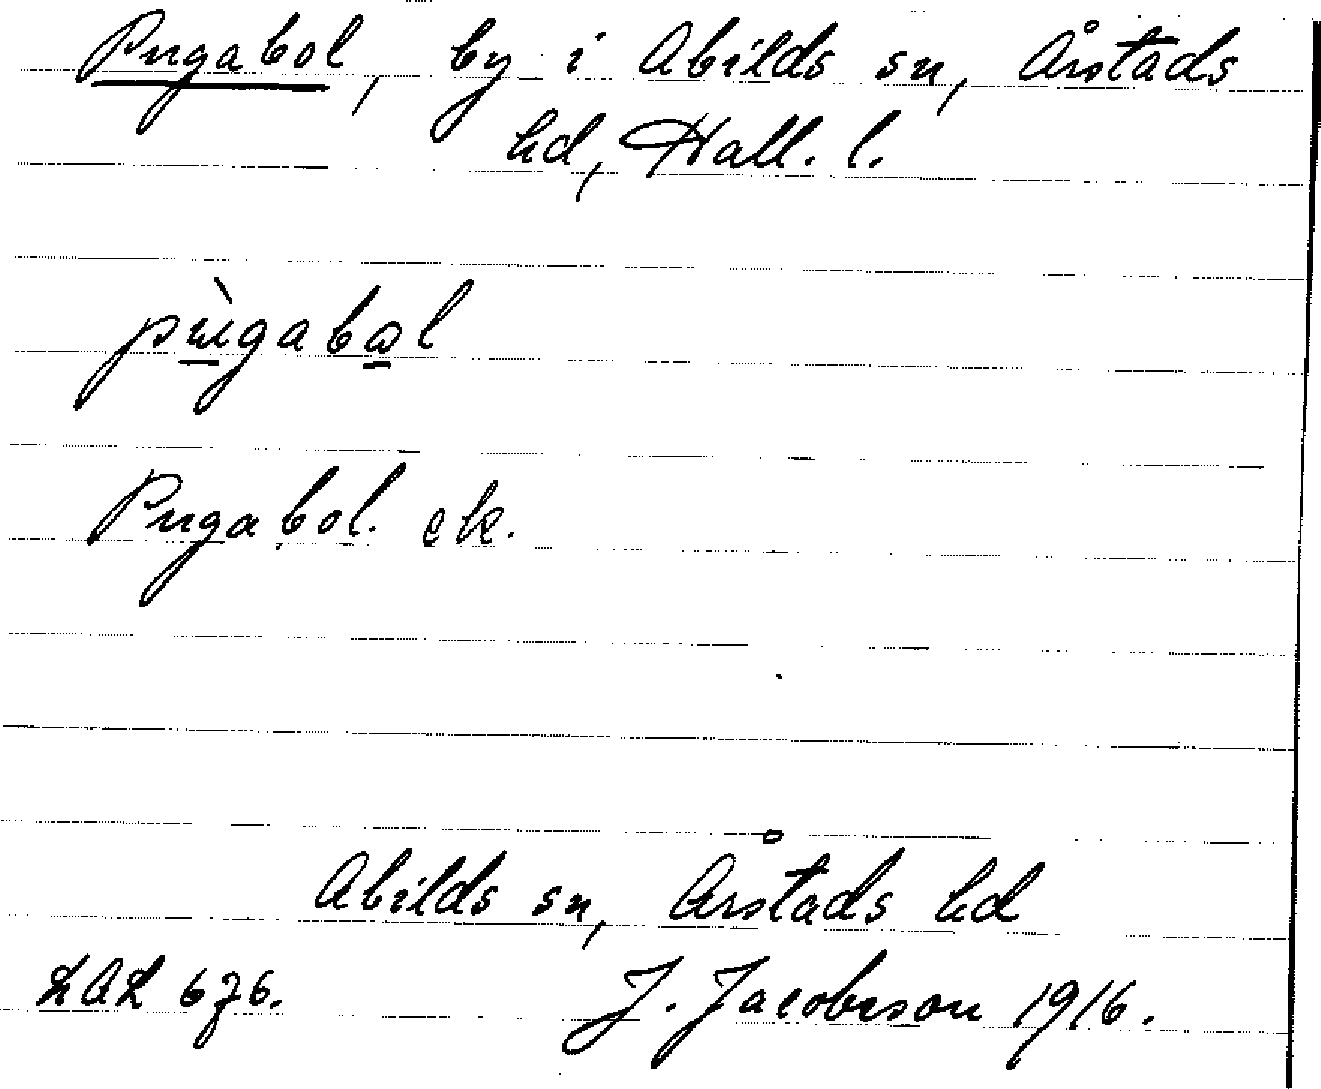 Pugabol, by i Abilds sn, Årstads
hd, Hall. l.
pùgabol
Pugabol. ek.
Abilds sn, Årstads hd
LAL 676. J. Jacobsson 1916.